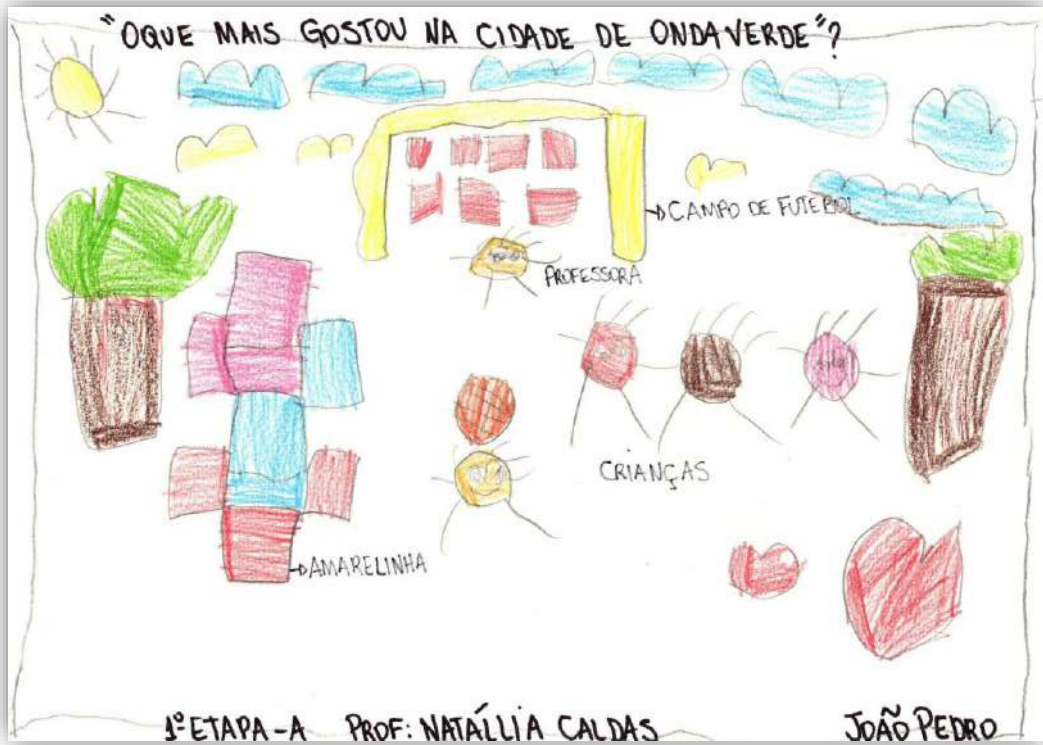 "OQUE MAIS GOSTOU NA CIDADE DE ONDAVERDE"?
CAMPO DE FUTEBOL
PROFESSORA
CRIANÇAS
AMARELINHA
1º ETAPA-A PROF: NATAÍLLIA CALDAS
JOÃO PEDRO